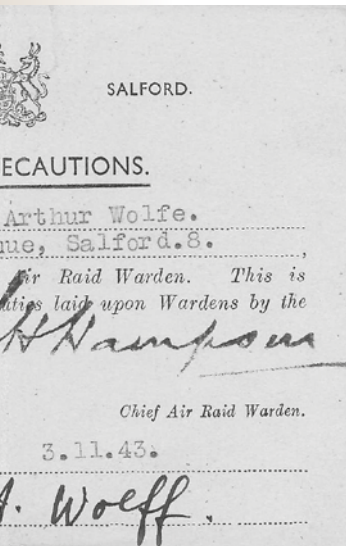 SALFORD.
ECAUTIONS.
Arthur Wolfe.
nue, Salford.8.,
ir Raid Warden. This is
uties laid upon Wardens by the
H Hampson
Chief Air Raid Warden.
3.11.43.
A. Wolff.